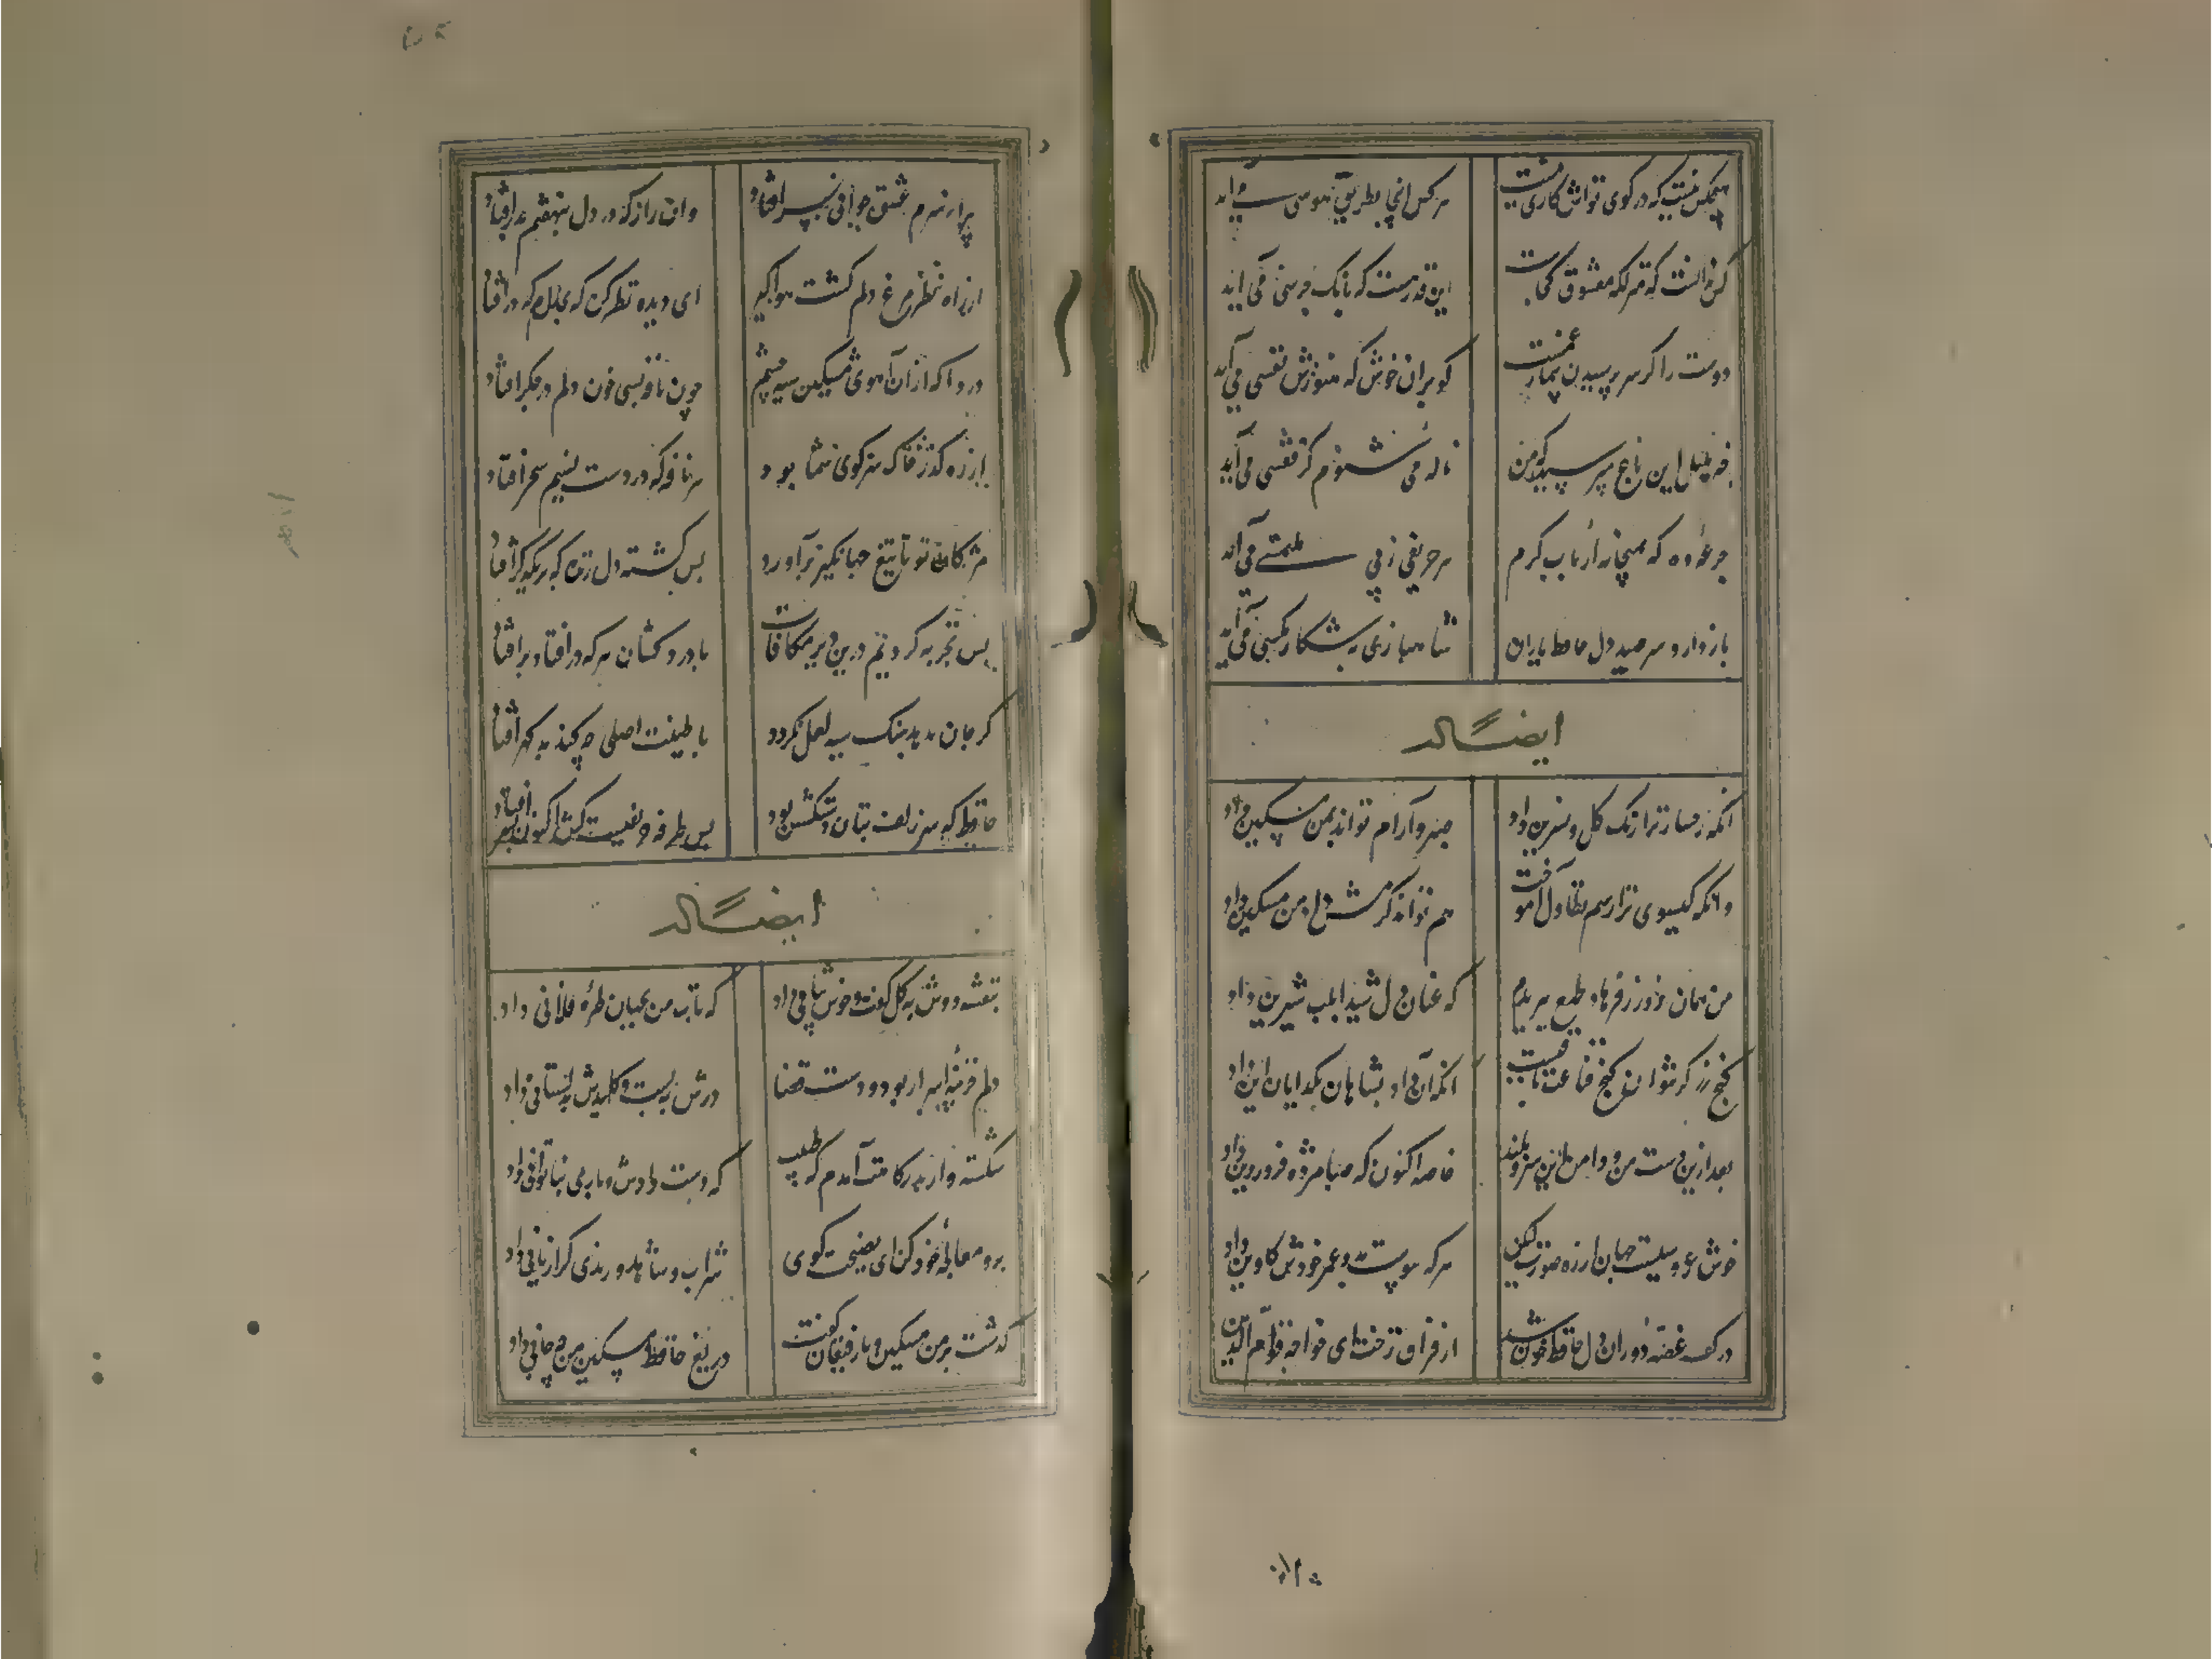 هیچکس نیست که در کوی تواش کاری نیست هر کس اینجا بطریق هوسی می آید
کس ندانست که منزلگه معشوق کجاست این قدر هست که بانک جرسی می آید
دوست را گر سر پرسیدن بیمار غمست گو بران خوش که هنوزش نفسی می آید
خبر بلبل این باغ مپرسید که من ناله می شنوم کز قفسی می آید
جرعه ده که بمیخانه ارباب کرم هر حریفی ز پی ملتمسی می آید
یار دارد سر صید دل حافظ یاران شاهبازی بشکار مگسی می آید
ایضاً له
آنکه رخسار ترا رنک کل و نسرین داد صبر و آرام تواند بمن مسکین داد
وانکه کیسوی ترا رسم تطاول آموخت هم تواند کرمش داد من مسکین داد
من همان روز ز فرهاد طمع ببریدم که عنان دل شیدا بلب شیرین داد
کنج زر کر نبود کنج قناعت باقیست آنکه آن داد بشاهان بکدایان این داد
بعد ازین دست من و دامن این سرو بلند خاصه اکنون که صبا مژده فروردین داد
خوش عروسیست جهان از ره صورت لیکن هر که پیوست بدو عمر خودش کاوین داد
در کف غصه دوران دل حافظ خون شد از فراق رخت ای خواجه قوام الدین داد
پیرانه سرم عشق جوانی بسر افتاد وان راز که در دل بنهفتم بدر افتاد
از راه نظر مرغ دلم کشت هواکیر ای دیده نظر کن که بدام که در افتاد
دردا که ازان آهوی مشکین سیه چشم چون نافه بسی خون دلم در جکر افتاد
از ره کذر خاک سر کوی شما بود هر نافه که در دست نسیم سحر افتاد
مژکان تو تا تیغ جهانکیر برآورد بس کشته دل زنده که بر یکدکر افتاد
بس تجربه کردیم درین دیر مکافات با درد کشان هر که در افتاد بر افتاد
کر جان بدهد سنک سیه لعل نکردد با طینت اصلی چه کند بد کهر افتاد
حافظ که سر زلف بتان دستکشش بود بس طرفه حریفیست کش اکنون بسر افتاد
ایضاً له
بنفشه دوش به کل کفت و خوش نشانی داد که تاب من بجهان طره فلانی داد
دلم خزینه اسرار بود و دست قضا درش ببست و کلیدش به دلستانی داد
شکسته وار بدرکاهت آمدم که طبیب
برو معالجه خود کن ای نصیحت کوی شراب و شاهد و رندی کرا زیانی داد
کذشت بر من مسکین و با رقیبان کفت دریغ حافظ مسکین من چه جانی داد